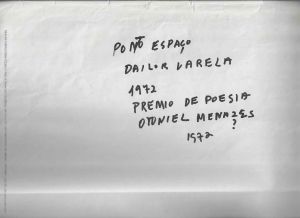 PONTO ESPAÇO
DAILOR VARELA
1972
PREMIO DE POESIA
OTONIEL MENEZES
?
1972